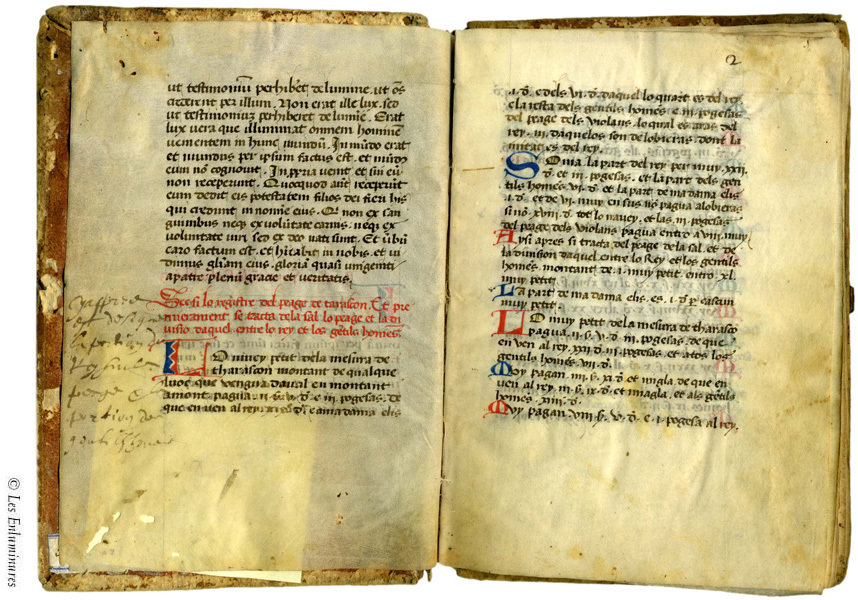 ut testimoniu perhibet de lumine. ut oēs
crederent per illum. Non erat ille lux. sed
ut testimoniuz perhiberet de lumīe. Erat
lux vera que illuminat omnem hominē
venientem in hunc mundū. In mūdo erat
et mundus per ipsum factus est. et mūdꝰ
eum nō cognovit. In ꝓpria venit et sui eū
non receperunt. Quotquot aūt receperūt
eum dedit eis potestatem filios dei fieri hiis
qui credunt in nomīe eius. Qi non ex san
guinibus neqꝫ ex volūtate carnis. neqꝫ ex
voluntate viri sed ex deo nati sunt. Et ūbū
caro factum est. et hītabit in nobis. et vi
dimus gl̄iam eius. gloriā quasi unigeniti
a patre plenū gracie et veritatis.
So es si lo registre del peage de tarascon. Et pre
mierament se tracta dela sal lo peage et la di
visio daquel entre lo rey et los gētils homēs
LO mucy petit dela mesura de
tharascon montant de qualque
luoc que vengua daval en montant
amont pagua
e .iii. pogesas. de
que en ven al rey
e a ma dama elis
gentils homes
2
.i. d̄. e dels .vi. d̄. daquel lo quart es del rey
e la resta dels gentils homēs e .iii. pogesas
del peage dels violans. lo qual es aras del
rey. .iii. daquelos son de lobieras. dont la
mitat es del rey.
SOma la part del rey per muy .xxii.
d̄. et .iii. pogesas. et la part dels gen
tils homēs .vi. d̄. et la part de ma dama elis
.i. d̄. et de .vi. muy en sus nō pagua a lobieras
si nō .xviii. d̄. tot lo navey. et las .iii. pogesas
del peage dels violans pagua entro a .viii. muy
Aysi apres si tracta del peage de la sal. et de
la division daquel entre lo Rey et los gentils
homēs. montant de .i. muy petit entro .xl.
muy petit.
La part de ma dama elis. es .i. d̄. per cascun
muy petit.
LO muy petit de la mesura de tharasco
pagua .ii. s̄. v. d̄. .iii. pogesas. de que
en ven al rey .xxii. d̄. .iii. pogesas. et a tos los
gentils homēs .vii. d̄.
Moy pagan .iiii. s̄. xi. d̄. et migla. de que en
ven al rey .iii. s̄. ix. d̄. et miagla. et als gētils
homēs .xiiii. d̄.
Moy pagan .viii. s̄. v. d̄. e .i. pogesa al rey.
© Les Enluminures